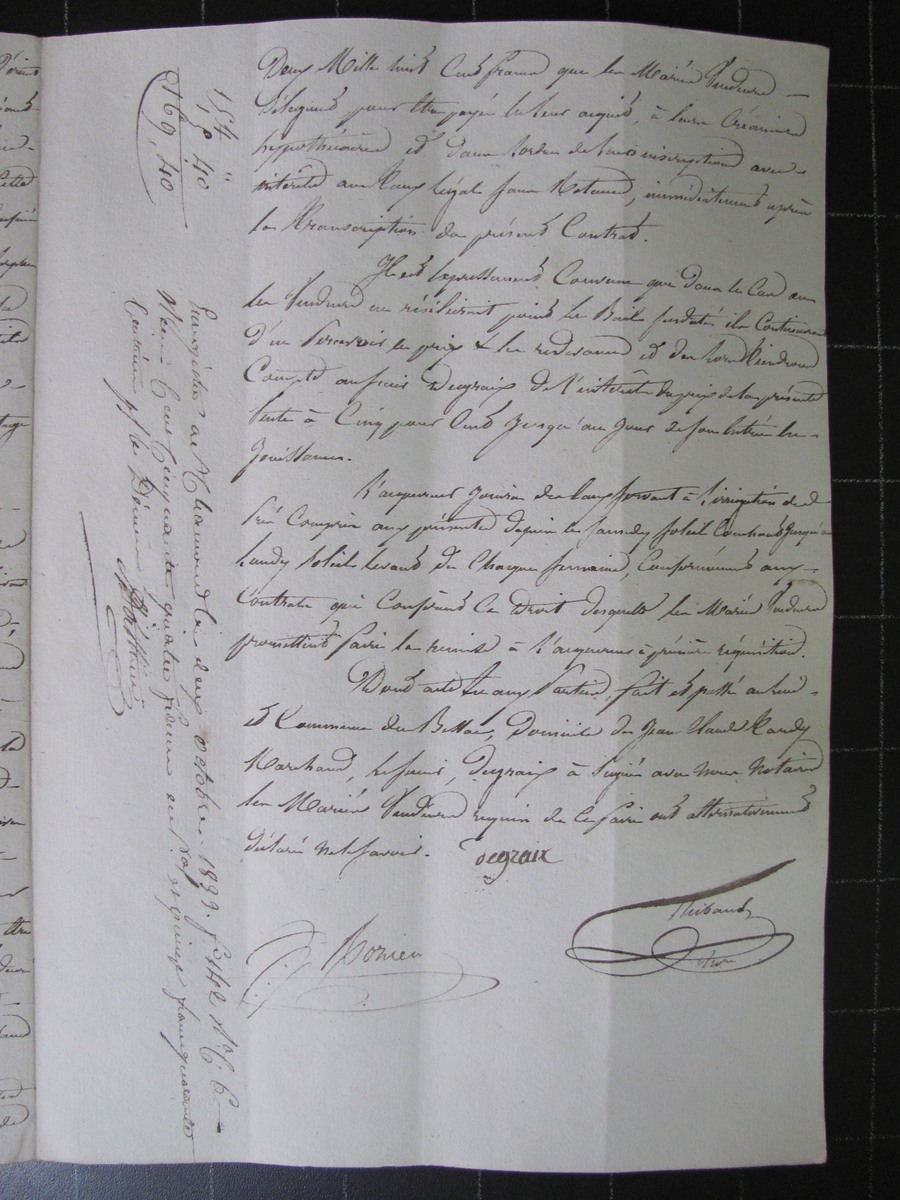 Deux Mille huit Cent francs que les Mariés Vendeurs
délèguent pour être payés en leur acquit, à leurs Créanciers
hypothécaires et dans l'ordre de leurs inscriptions avec
intérêts au taux légal sans Retenue, immédiatement après
la transcription du présent Contrat.
Il est expressément Convenu que dans le Cas où
les Vendeurs ne résilieroient point le Bail susdaté ils Continueront
d'en percevoir le prix & les redevances et de leur tiendront
Compte au sieur Degraix de l'intérêt du prix de la présente
Vente à Cinq pour Cent jusqu'au jour de son entrée en
jouissance.
L'acquereur jouira des Eaux servant à l'irrigation du
Pré Compris aux présentes depuis le samedy soleil Couchant jusqu'au
Lundy soleil levant de Chaque semaine, Conformément aux
Contrats qui Confèrent ce droit desquels les Mariés Vendeurs
promettent faire la remise à l'acquereur à première réquisition.
Dont acte lu aux Parties, fait et passé au lieu
et Commune du Bessat, Domicile de Jean Claude Tardy
Marchand, le sieur, Degraix à signé avec nous Notaires
les Mariés Vendeurs requis de ce faire ont alternativement
déclaré ne le savoir. Degraix
Thibaud
Morier
154 "
15 40
169, 40
Enregistré à St Chamond le deux octobre 1822. f° 142 N° C. 6
Reçu Cent Cinquante quatre francs et quinze francs quarante
Centimes pr le Décime